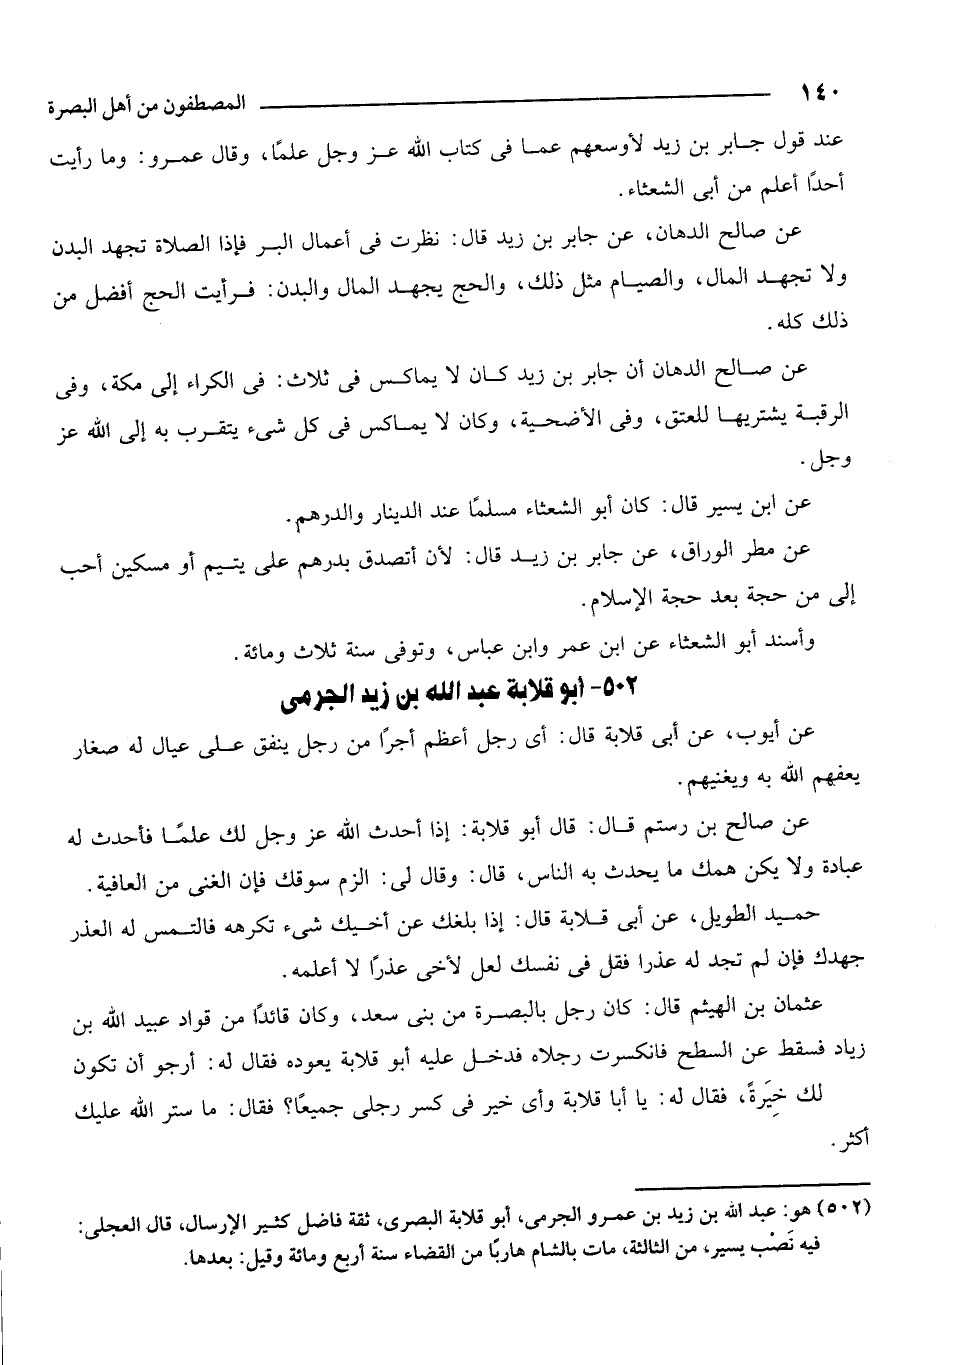 ١٤٠ المصطفون من أهل البصرة
عند قول جابر بن زيد لأوسعهم عما فى كتاب الله عز وجل علمًا، وقال عمرو: وما رأيت
أحدًا أعلم من أبى الشعثاء.
عن صالح الدهان، عن جابر بن زيد قال: نظرت فى أعمال البر فإذا الصلاة تجهد البدن
ولا تجهد المال، والصيام مثل ذلك، والحج يجهد المال والبدن: فرأيت الحج أفضل من
ذلك كله.
عن صالح الدهان أن جابر بن زيد كان لا يماكس فى ثلاث: فى الكراء إلى مكة، وفى
الرقبة يشتريها للعتق، وفى الأضحية، وكان لا يماكس فى كل شىء يتقرب به إلى الله عز
وجل.
عن ابن يسير قال: كان أبو الشعثاء مسلمًا عند الدينار والدرهم.
عن مطر الوراق، عن جابر بن زيد قال: لأن أتصدق بدرهم على يتيم أو مسكين أحب
إلى من حجة بعد حجة الإسلام.
وأسند أبو الشعثاء عن ابن عمر وابن عباس، وتوفى سنة ثلاث ومائة.
٥٠٢- أبو قلابة عبد الله بن زيد الجرمى
عن أيوب، عن أبى قلابة قال: أى رجل أعظم أجرًا من رجل ينفق على عيال له صغار
يعفهم الله به ويغنيهم.
عن صالح بن رستم قال: قال أبو قلابة: إذا أحدث الله عز وجل لك علمًا فأحدث له
عبادة ولا يكن همك ما يحدث به الناس، قال: وقال لى: الزم سوقك فإن الغنى من العافية.
حميد الطويل، عن أبى قلابة قال: إذا بلغك عن أخيك شىء تكرهه فالتمس له العذر
جهدك فإن لم تجد له عذرا فقل فى نفسك لعل لأخى عذرًا لا أعلمه.
عثمان بن الهيثم قال: كان رجل بالبصرة من بنى سعد، وكان قائدًا من قواد عبيد الله بن
زياد فسقط عن السطح فانكسرت رجلاه فدخل عليه أبو قلابة يعوده فقال له: أرجو أن تكون
لك خِيَرةً، فقال له: يا أبا قلابة وأى خير فى كسر رجلى جميعًا؟ فقال: ما ستر الله عليك
أكثر.
(٥٠٢) هو: عبد الله بن زيد بن عمرو الجرمى، أبو قلابة البصرى، ثقة فاضل كثير الإرسال، قال العجلى:
فيه نَصْب يسير، من الثالثة، مات بالشام هاربًا من القضاء سنة أربع ومائة وقيل: بعدها.